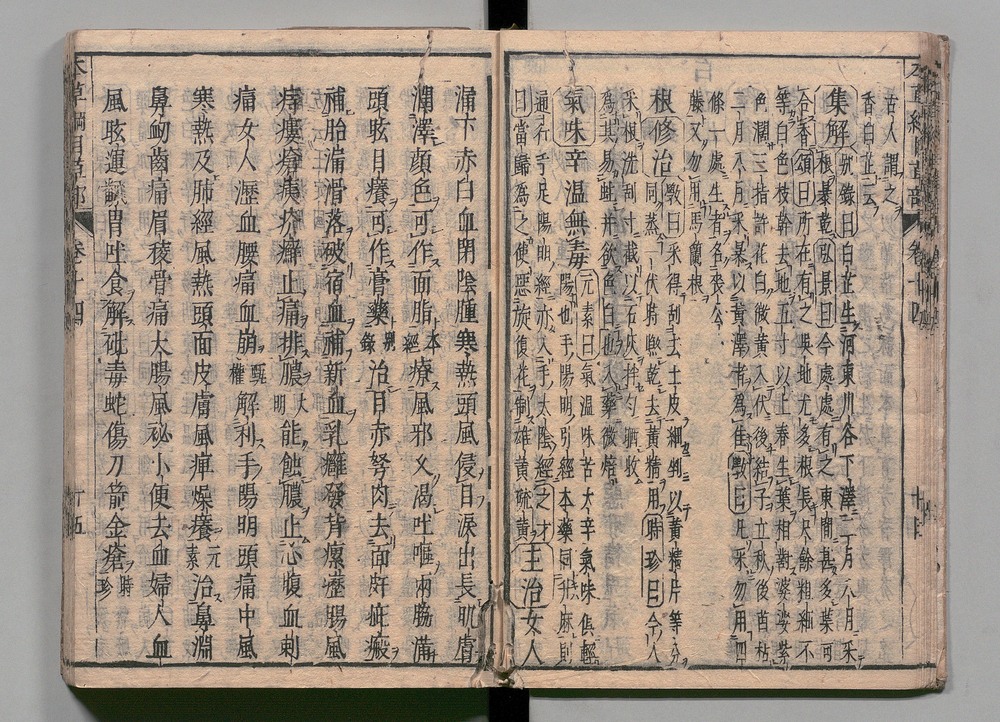 古人謂之
香白芷云
集解 別錄曰白芷生河東川谷下澤二月八月采
根暴乾弘景曰今處處有之東間甚多葉可
合香頌曰所在有之吳地尤多根長尺餘粗細不
等白色枝幹去地五寸以上春生葉相對婆娑紫
色闊三指許花白微黃入伏後結子立秋後苗枯
二月八月采暴以黃澤者為佳斅曰凡采勿用四
條一處生者名喪公
藤又勿用馬蘭根
根修治 斅曰采得刮去土皮細剉以黃精片等分
同蒸一伏時晒乾去黃精用時珍曰今人
采根洗刮寸截以石灰拌勻晒收
為其易蛀并欲色白也入藥微焙
氣味辛溫無毒 元素曰氣溫味苦大辛氣味俱輕
陽也手陽明引經本藥同升麻則
通行手足陽明經亦入手太陰經之才
曰當歸為之使惡旋復花制雄黃硫黃 主治女人
漏下赤白血閉陰腫寒熱頭風侵目淚出長肌膚
潤澤顏色可作面脂本經療風邪久渴吐嘔兩脇滿
頭眩目癢可作膏藥別錄治目赤努肉去面皯疵瘢
補胎漏滑落破宿血補新血乳癰發背瘰癧腸風
痔瘻瘡痍疥癬止痛排膿大明能蝕膿止心腹血刺
痛女人瀝血腰痛血崩甄權解利手陽明頭痛中風
寒熱及肺經風熱頭面皮膚風痺燥癢元素治鼻淵
鼻衄齒痛眉稜骨痛大腸風祕小便去血婦人血
風眩運翻胃吐食解砒毒蛇傷刀箭金瘡時珍
本草綱目草部 卷十四 十五